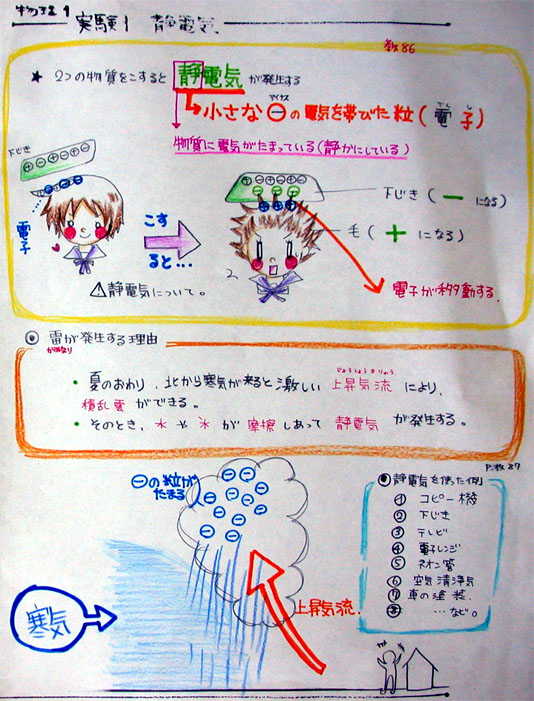 物理1
実験1 静電気
教86
★ 2つの物質をこすると 静電気 が発生する
マイナス
小さな⊖の電気を帯びた粒(電子)
でんし
物質に電気がたまっている(静かにしている)
下じき
電子
こす
ると…
下じき(ーになる)
毛(+になる)
電子が移動する.
△静電気について。
◎ 雷が発生する理由
かみなり
じょうしょうきりゅう
・夏のおわり、北から寒気が来ると激しい 上昇気流 により、
積乱雲ができる。
・そのとき、水や氷が摩擦しあって 静電気 が発生する。
P.教87
⊖の粒が
たまる
寒気
上昇気流.
◎静電気を使った例
① コピー機
② 下じき
③ テレビ
④ 電子レンジ
⑤ ネオン管
⑥ 空気清浄気
⑦ 車の塗装.
…など。